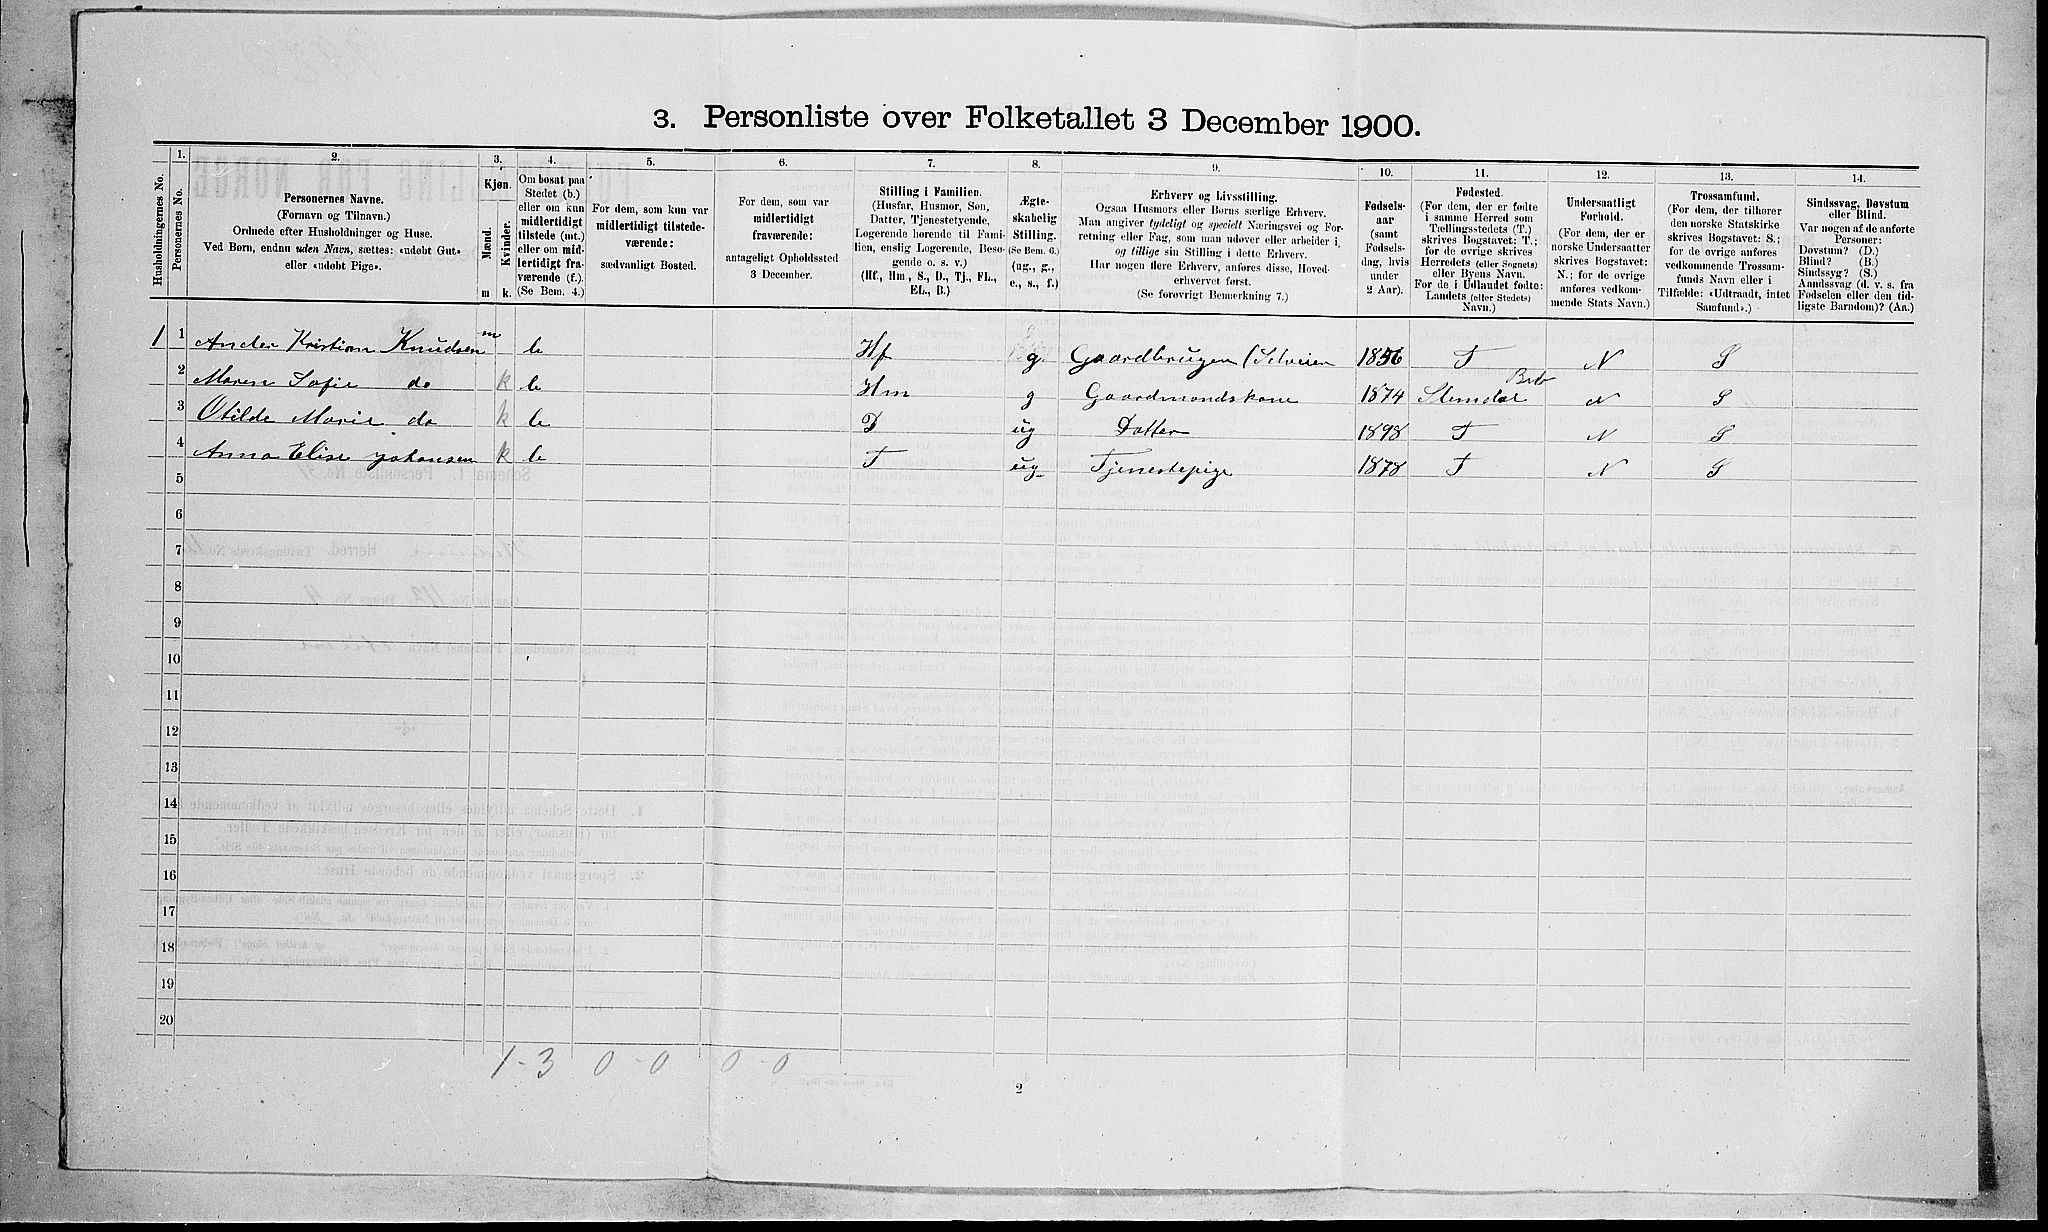 3. Personliste over Folketallet 3 December 1900.
Husholdningernes No.
1.
Personernes No.
2.
Personernes Navne.
(Fornavn og Tilnavn.)
Ordnede efter Husholdninger og Huse.
Ved Børn, endnu uden Navn, sættes: «udøbt Gut»
eller «udøbt Pige».
3.
Kjøn.
Mænd.
Kvinder.
m
k.
4.
Om bosat paa
Stedet (b.)
eller om kun
midlertidigt
tilstede (mt.)
eller om mid-
lertidigt fra-
værende (f.).
(Se Bem. 4.)
5.
For dem, som kun var
midlertidigt tilstede-
værende:
sædvanligt Bosted.
6.
For dem, som var
midlertidigt
fraværende:
antageligt Opholdssted
3 December.
7.
Stilling i Familien.
(Husfar, Husmor, Søn,
Datter, Tjenestetyende,
Logerende hørende til Fami-
lien, enslig Logerende, Besø-
gende o. s. v.)
(Hf, Hm, S., D., Tj., FL.,
EL., B.)
8.
Ægte-
skabelig
Stilling.
(Se Bem. 6.)
(ug., g.,
e., s., f.)
9.
Erhverv og Livsstilling.
Ogsaa Husmors eller Børns særlige Erhverv.
Man angiver tydeligt og specielt Næringsvei og For-
retning eller Fag, som man udøver eller arbeider i,
og tillige sin Stilling i dette Erhverv.
Har nogen flere Erhverv, anføres disse, Hoved-
erhvervet først.
(Se forøvrigt Bemerkning 7.)
10.
Fødsels-
aar
(samt
Fødsels-
dag, hvis
under
2 Aar).
11.
Fødested.
(For dem, der er fødte
i samme Herred som
Tællingsstedets (T.)
skrives Bogstavet: T.;
for de øvrige skrives
Herredets (eller Sognets)
eller Byens Navn.
For de i Udlandet fødte:
Landets (eller Stedets)
Navn.)
12.
Undersaatligt
Forhold.
(For dem, der er
norske Undersaatter
skrives Bogstavet:
N.; for de øvrige
anføres vedkom-
mende Stats Navn.)
13.
Trossamfund.
(For dem, der tilhører
den norske Statskirke
skrives Bogstavet: S.;
for de øvrige anføres
vedkommende Trossam-
funds Navn eller i
Tilfælde: «Udtraadt, intet
Samfund».)
14.
Sindssvag, Døvstum
eller Blind.
Var nogen af de anførte
Personer:
Døvstum? (D.)
Blind? (B.)
Sindssyg? (S.)
Aandssvag (d. v. s. fra
Fødselen eller den tid-
ligste Barndom)? (Aa.)
1 1 Ander Kristian Knudsen m b Hf g. Gaardbruger (Selveier 1856 T N S
2 Maren Sofie do k b Hm g Gaardmandskone 1874 N S
3 Otilde Marie do k b D ug Datter 1898 T N S
4 Anna Elise Johansen k b T ug Tjenestepige 1878 T N S
5
6
7
8
9
10
11
12
13
14
15
16
17
18
19
20
1-3 0-0 0-0
2